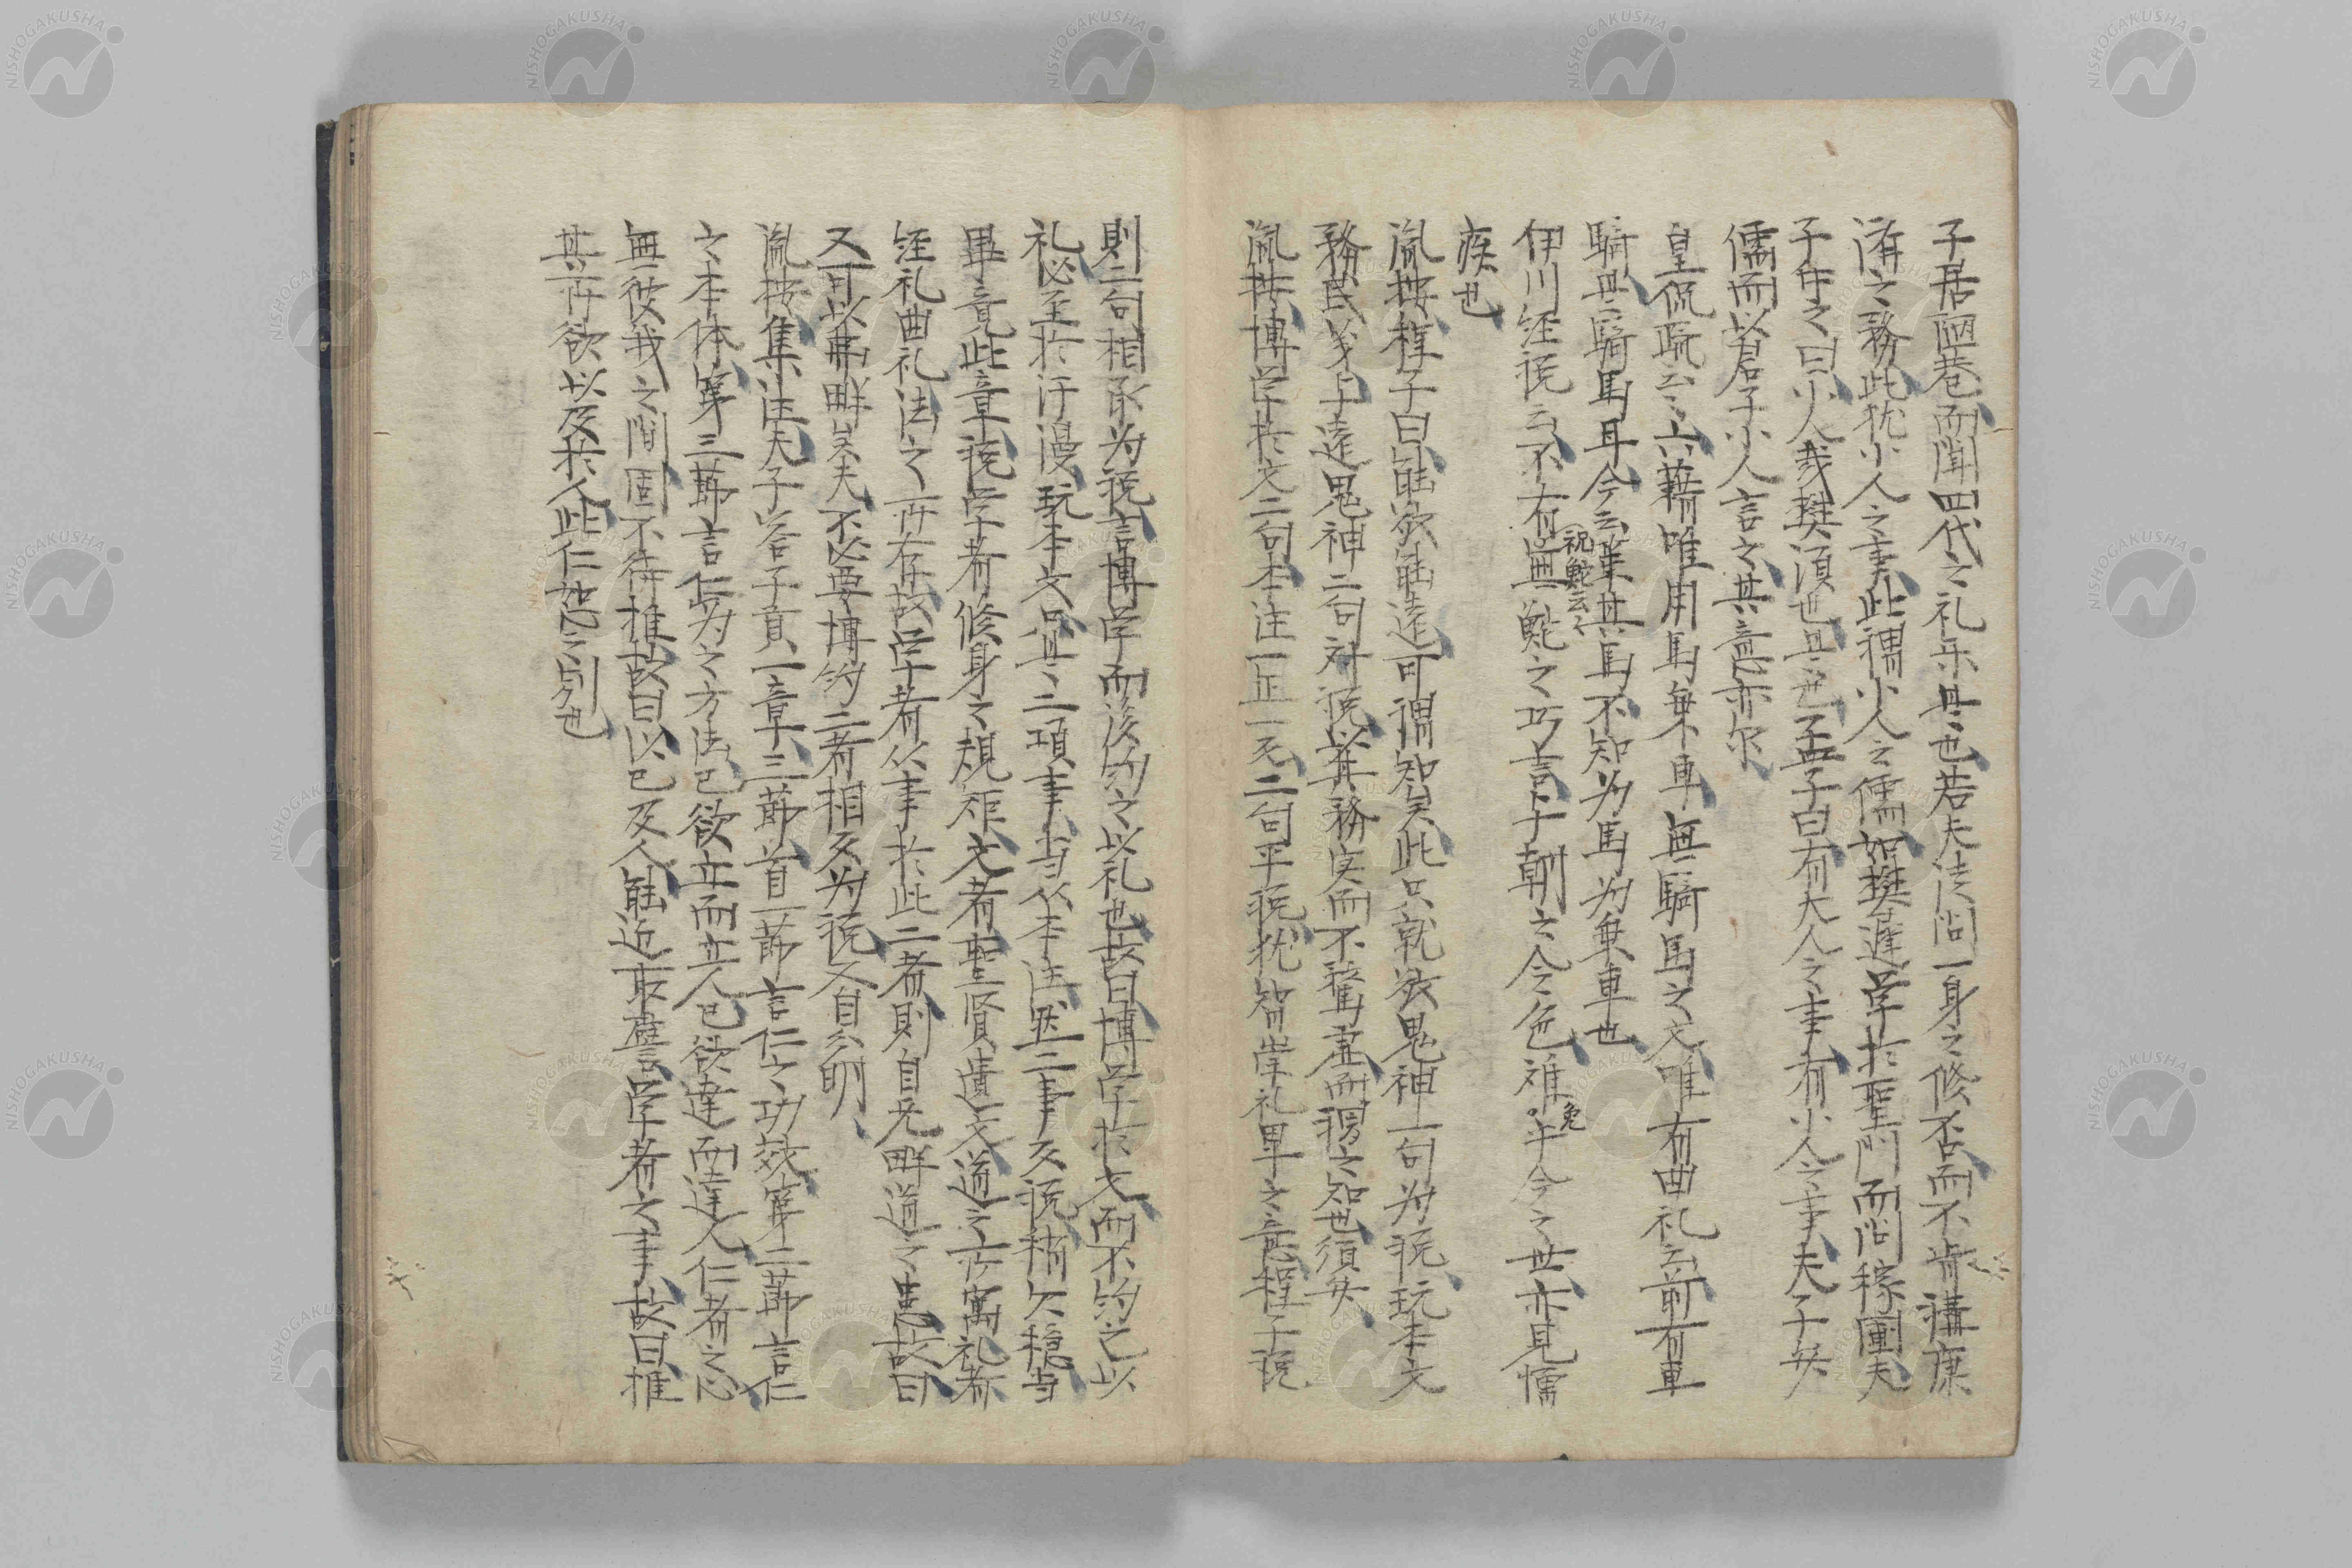 子居陋巷而聞四代之礼乐是也若夫徒尚一身之修否而不肯講康
済之務此犹小人之事此謂小人之儒如樊遅学於聖門而問稼圃夫
子斥之曰小人哉樊須也是也孟子曰有大人之事有小人之事夫子於
儒而以君子小人言之其意亦尔
皇侃疏云六籍唯用馬乗車無騎馬之文唯有曲礼云前有車
騎是騎馬耳今云策其馬不知为馬为乗車也
伊川経説云不有祝鮀云々無鮀之巧言与朝之令色难乎免今之世亦見憎
疾也
胤按程子曰能敬能遠可謂智矣此只就敬鬼神一句为説玩本文
務民义与遠鬼神二句对説以其務实而不騖虚而謂之知也須失
胤按博学於文二句本注一正一反二句平説犹智崇礼卑之意程子説
則二句相承为説言博学而後約之以礼也故曰博学於文而不約之以
礼必至於汗漫玩本文只是二項事当从本注然二事反説稍欠穏当
畢竟此章説学者修身之規矩文者聖賢遺文道之所寓礼者
経礼曲礼法之所存故学者从事於此二者則自无畔道之患故曰
又可以弗畔矣夫不必要博約二者相反为説又自分明
胤按集注夫子答子貢一章三節首一節言仁之功効第二節言仁
之本体第三節言仁为之方法己欲立而立人己欲達而達人仁者之心
無彼我之間固不待推故曰以己及人能近取譬学者之事故曰推
其所欲以及於人此仁恕之別也